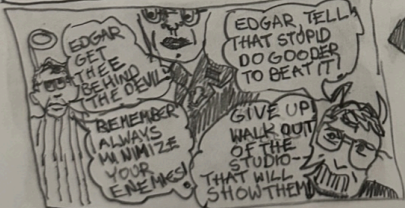 EDGAR
GET
THEE
BEHIND
THE DEVIL!
EDGAR, TELL
THAT STUPID
DO GOODER
TO BEAT IT!
REMEMBER
ALWAYS
MINIMIZE
YOUR
ENEMIES!
GIVE UP!
WALK OUT
OF THE
STUDIO--
THAT WILL
SHOW THEM!